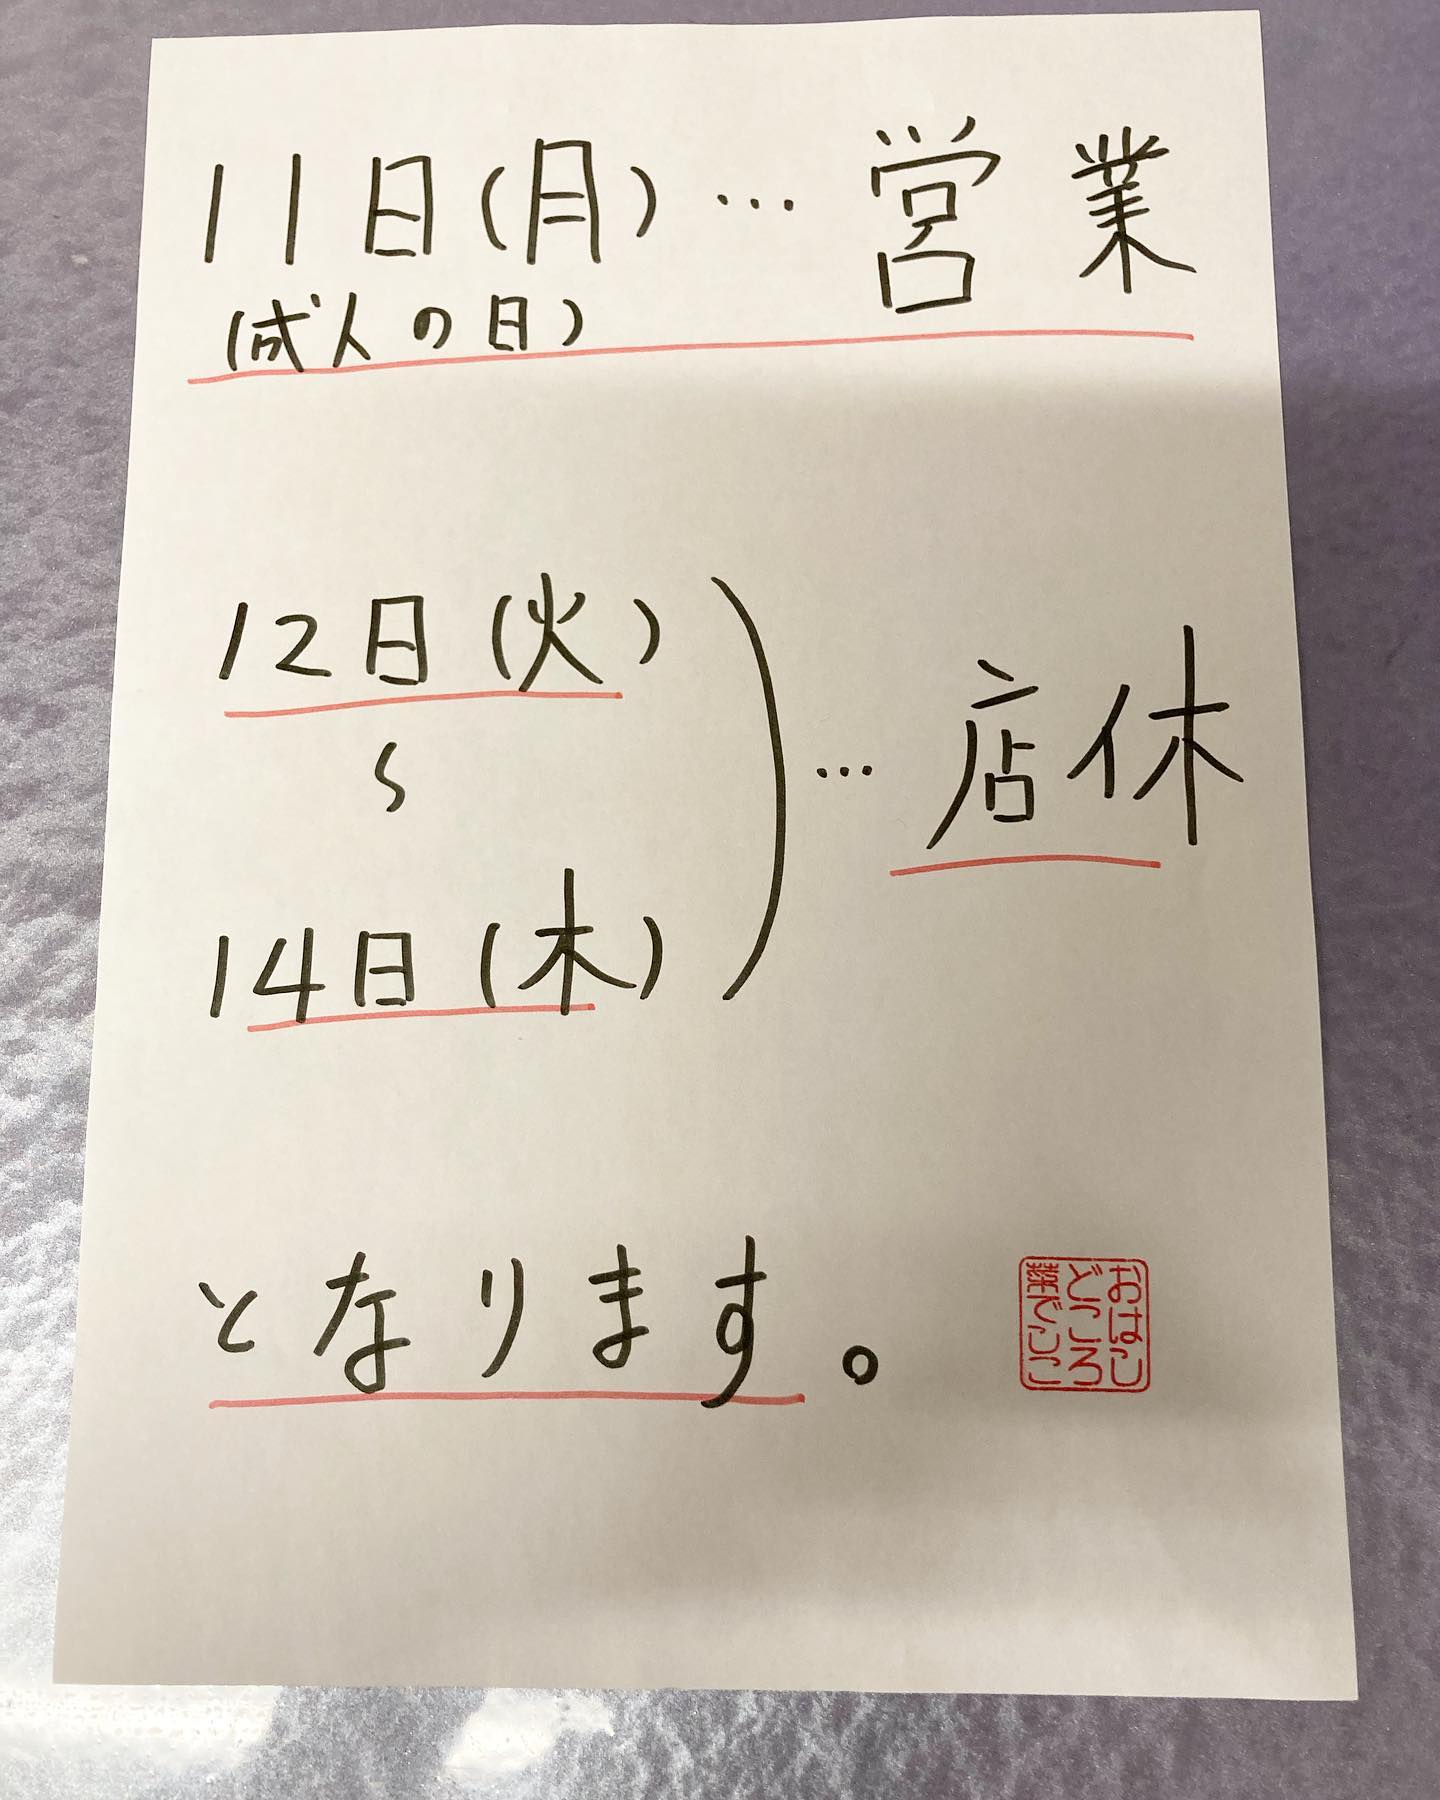 11日(月)…営業
(成人の日)
12日(火)
〜
14日(木)
…店休
となります。
おはし
どころ
でここ